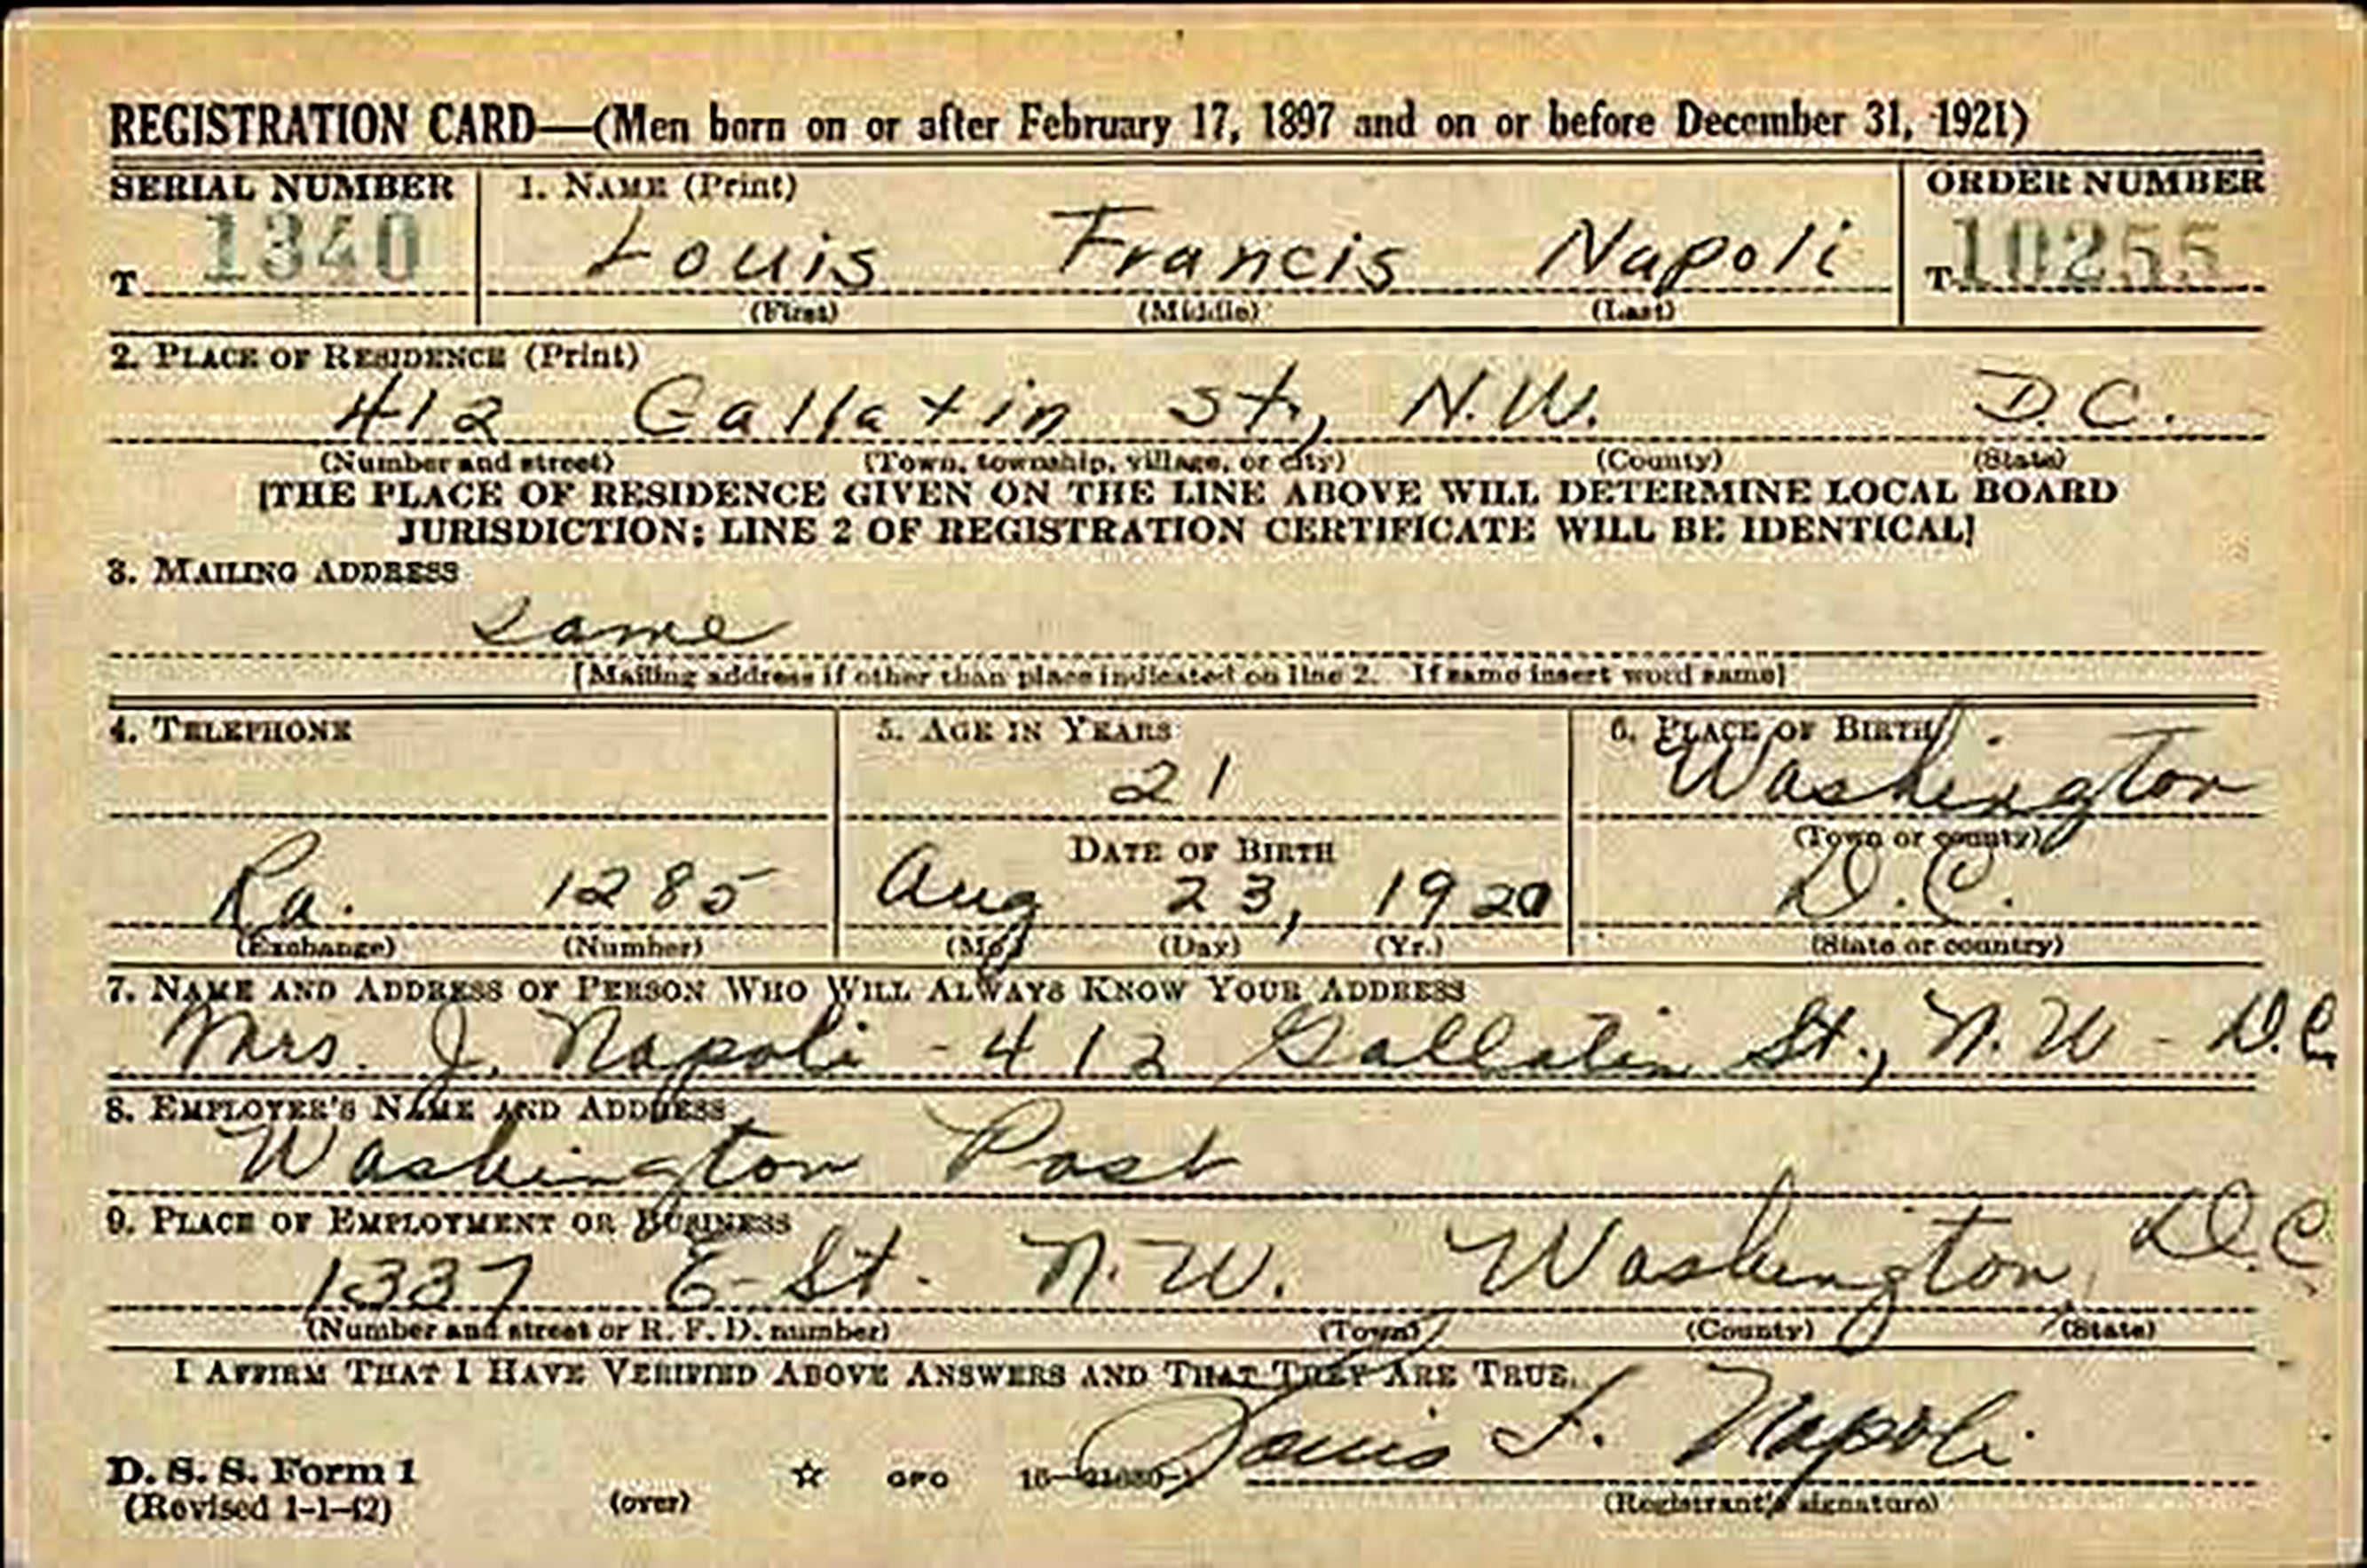 REGISTRATION CARD—(Men born on or after February 17, 1897 and on or before December 31, 1921)
SERIAL NUMBER 1. NAME (Print) ORDER NUMBER
T 1340 Louis Francis Napoli T 10255
(First) (Middle) (Last)
2. PLACE OF RESIDENCE (Print)
412 Gallatin St., N.W. D.C.
(Number and street) (Town, township, village, or city) (County) (State)
[THE PLACE OF RESIDENCE GIVEN ON THE LINE ABOVE WILL DETERMINE LOCAL BOARD
JURISDICTION; LINE 2 OF REGISTRATION CERTIFICATE WILL BE IDENTICAL]
3. MAILING ADDRESS
Same
[Mailing address if other than place indicated on line 2. If same insert word same]
4. TELEPHONE 5. AGE IN YEARS 6. PLACE OF BIRTH
21 Washington
DATE OF BIRTH (Town or county)
Ra. 1285 Aug 23, 1920 D.C.
(Exchange) (Number) (Mo.) (Day) (Yr.) (State or country)
7. NAME AND ADDRESS OF PERSON WHO WILL ALWAYS KNOW YOUR ADDRESS
Mrs. J. Napoli - 412 Gallatin St., N.W - D.C.
8. EMPLOYER'S NAME AND ADDRESS
Washington Post
9. PLACE OF EMPLOYMENT OR BUSINESS
1337 E-St. N.W. Washington, D.C.
(Number and street or R. F. D. number) (Town) (County) (State)
I AFFIRM THAT I HAVE VERIFIED ABOVE ANSWERS AND THAT THEY ARE TRUE.
Louis F. Napoli
D. S. S. Form 1 ☆ GPO
(Revised 1-1-42) (over) (Registrant's signature)